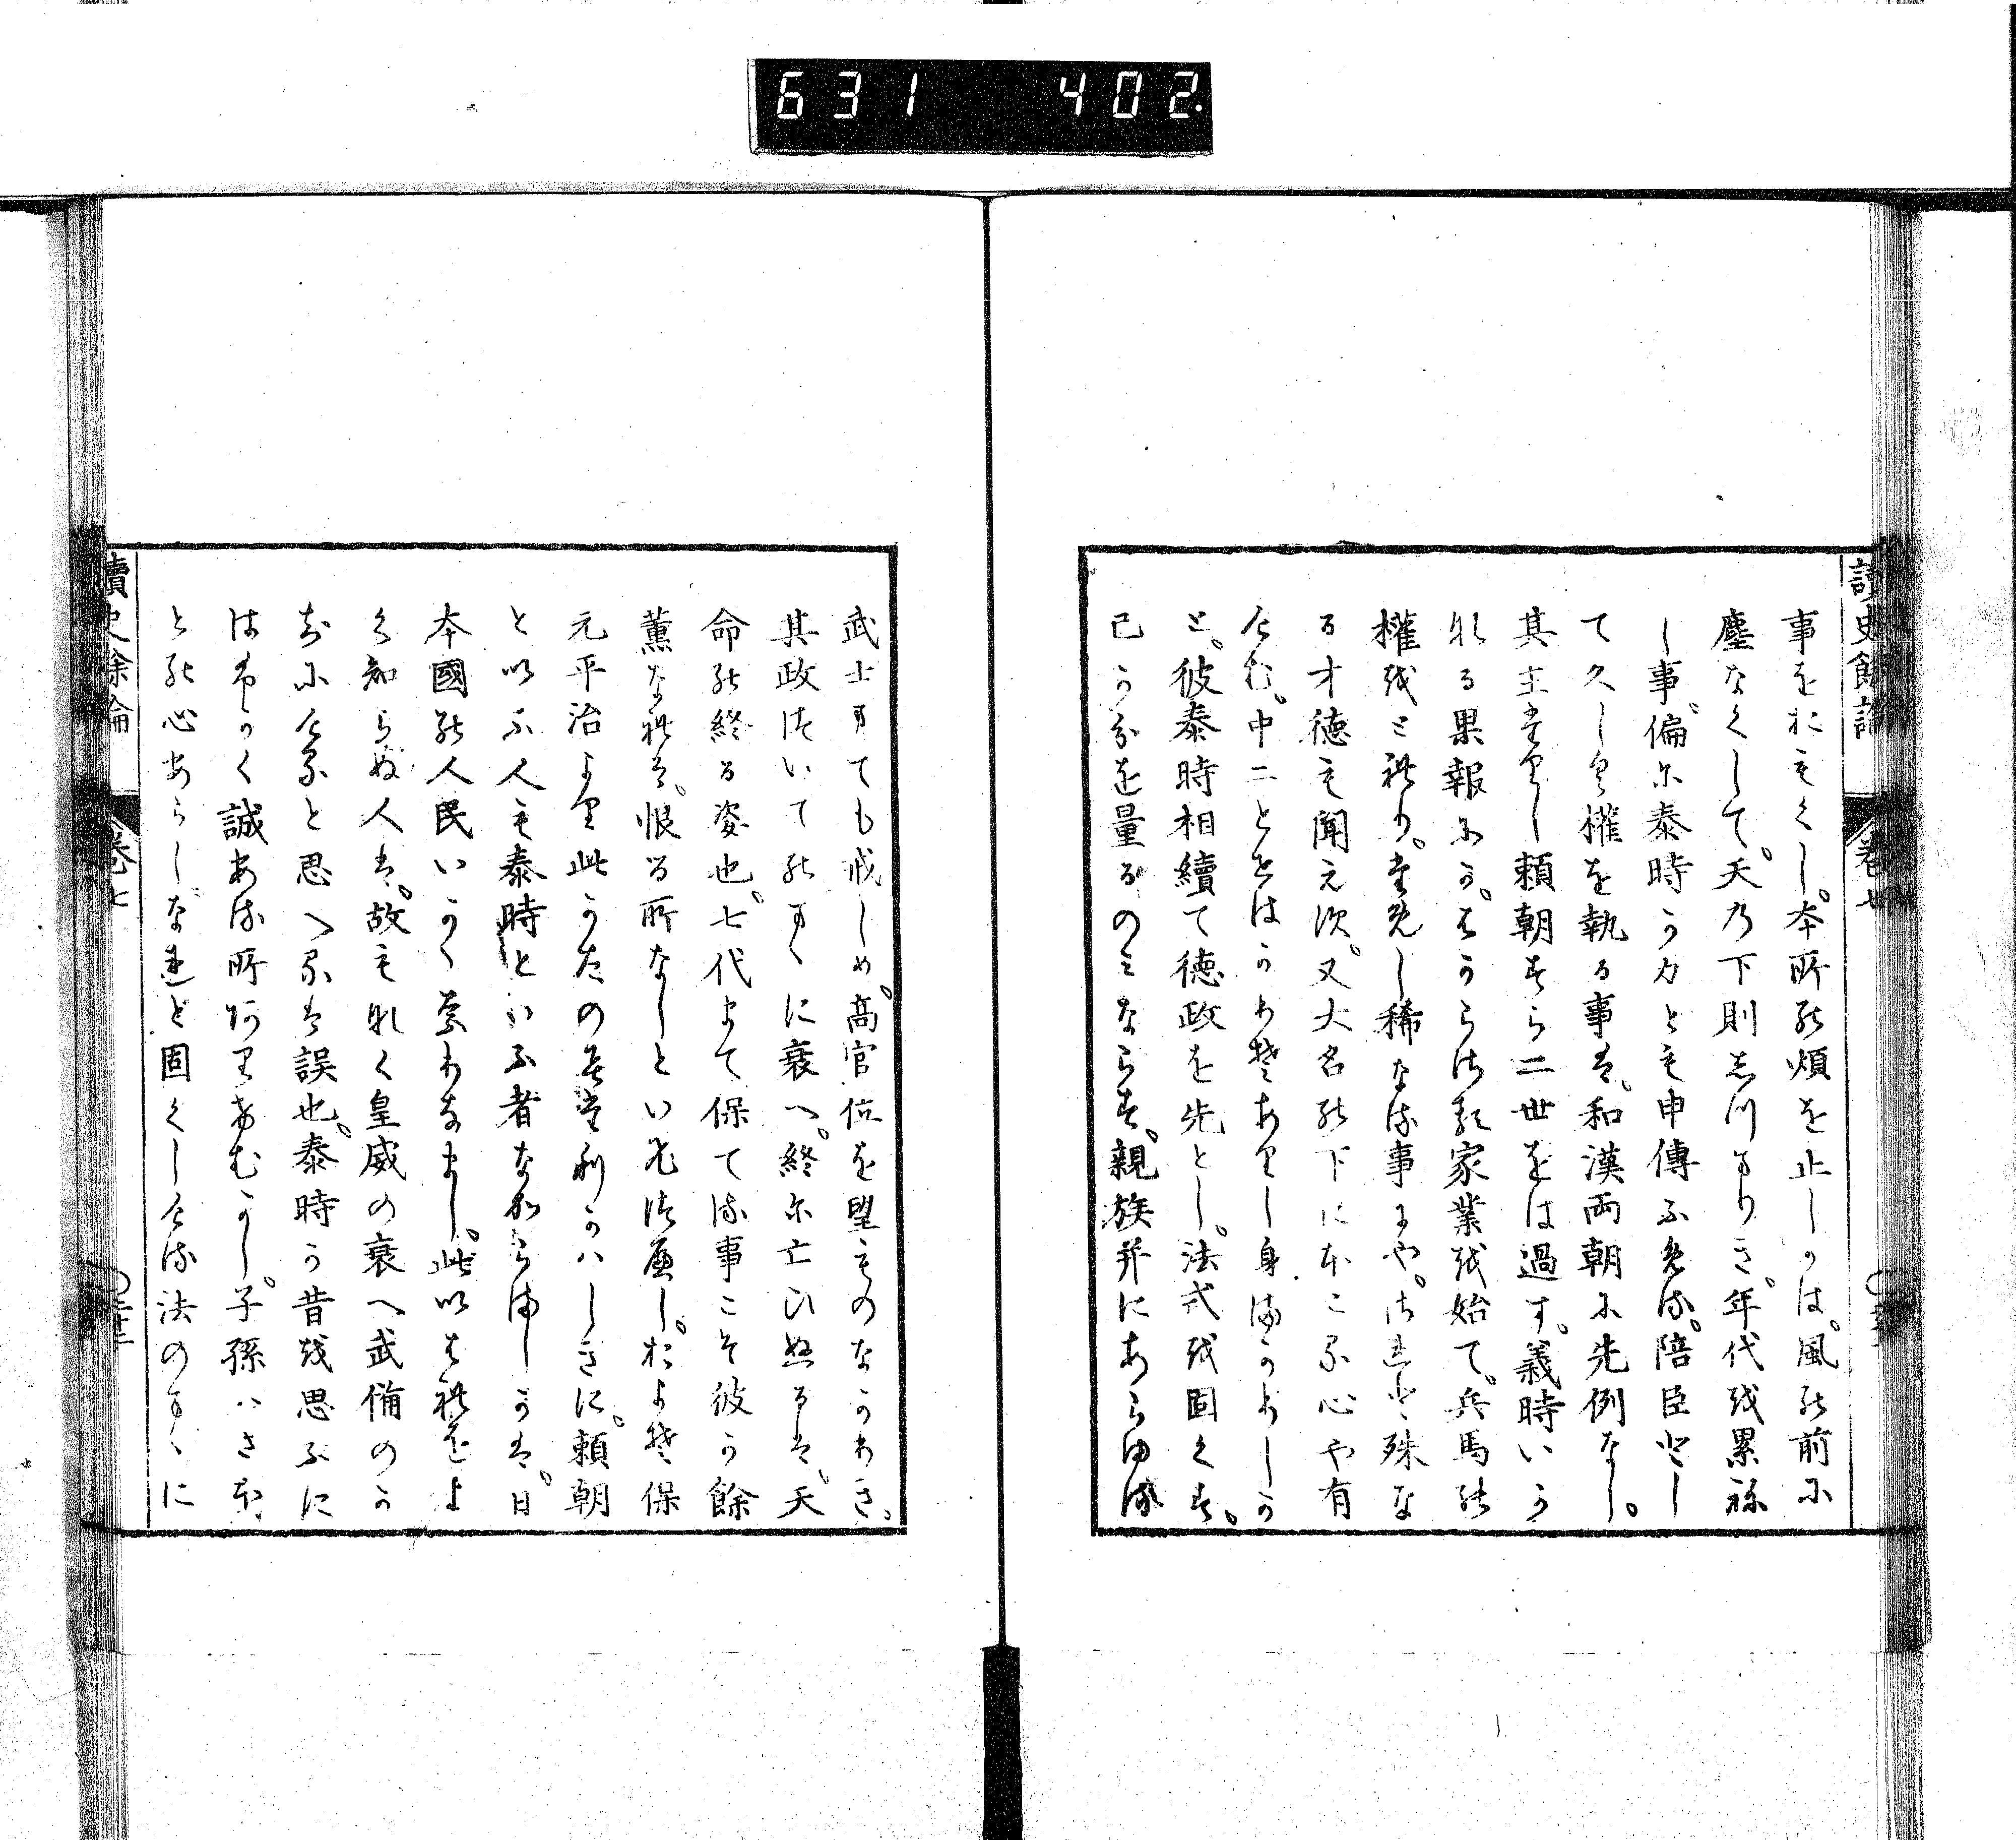 631 402.
讀史餘論 巻七
事をおもくし。本所の煩を止しかは。風の前に
塵なくして。天の下則しつまりき。年代を累ね
し事。偏に泰時か力とも申傳ふめる。陪臣とし
て久しく權を執る事は。和漢両朝に先例なし。
其主たりし頼朝すら二世をは過す。義時いか
なる果報にか。はからさる家業を始て。兵馬の
權をとれり。ためし稀なる事にや。されと殊な
る才徳も聞えす。又大名の下にほこる心や有
けむ。中二とせはかりそありし身まかりしか
と。彼泰時相續て徳政を先とし。法式を固くす。
己か分を量るのみならす。親族并にあらゆる
武士まても戒しめ。高官位を望ものなかりき。
其政次いてのまゝに衰へ。終に亡ひぬるは。天
命の終る姿也。七代まて保てる事こそ彼か餘
薫なれは。恨る所なしといひつへし。およそ保
元平治より此かたのみたりかはしきに。頼朝
と云人も泰時といふ者なからましかは。日
本國の人民いかゝなりなまし。此いはれをよ
く知らぬ人は。故もなく皇威の衰へ武備のか
ちにけると思へるは誤也。泰時か昔を思ふに
はよく誠ある所ありけむかし。子孫はさほ
との心あらしなれと固くしける法のまゝに
讀史餘論 巻七